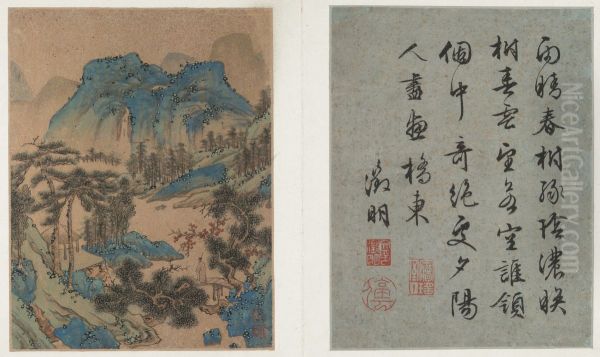 雨晴春樹綠陰濃映
樹春雲望若空誰領
個中奇絕處夕陽
人盡畫橋東
徵明
NiceArtGallery.com